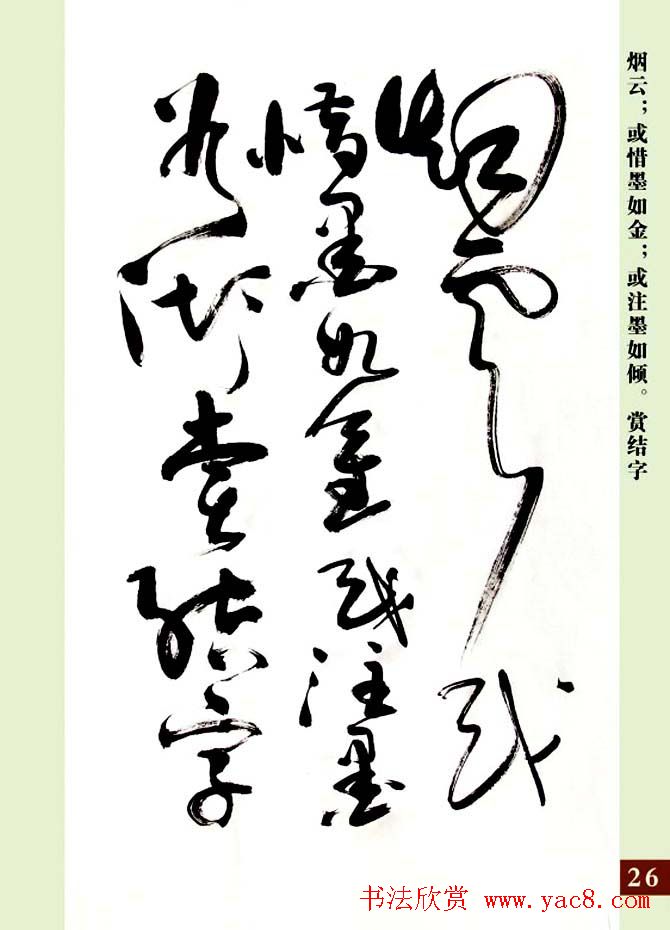 烟云或
惜墨如金或注墨
如倾赏结字
烟云；或惜墨如金；或注墨如倾。 赏结字
26
书法欣赏 www.yac8.com